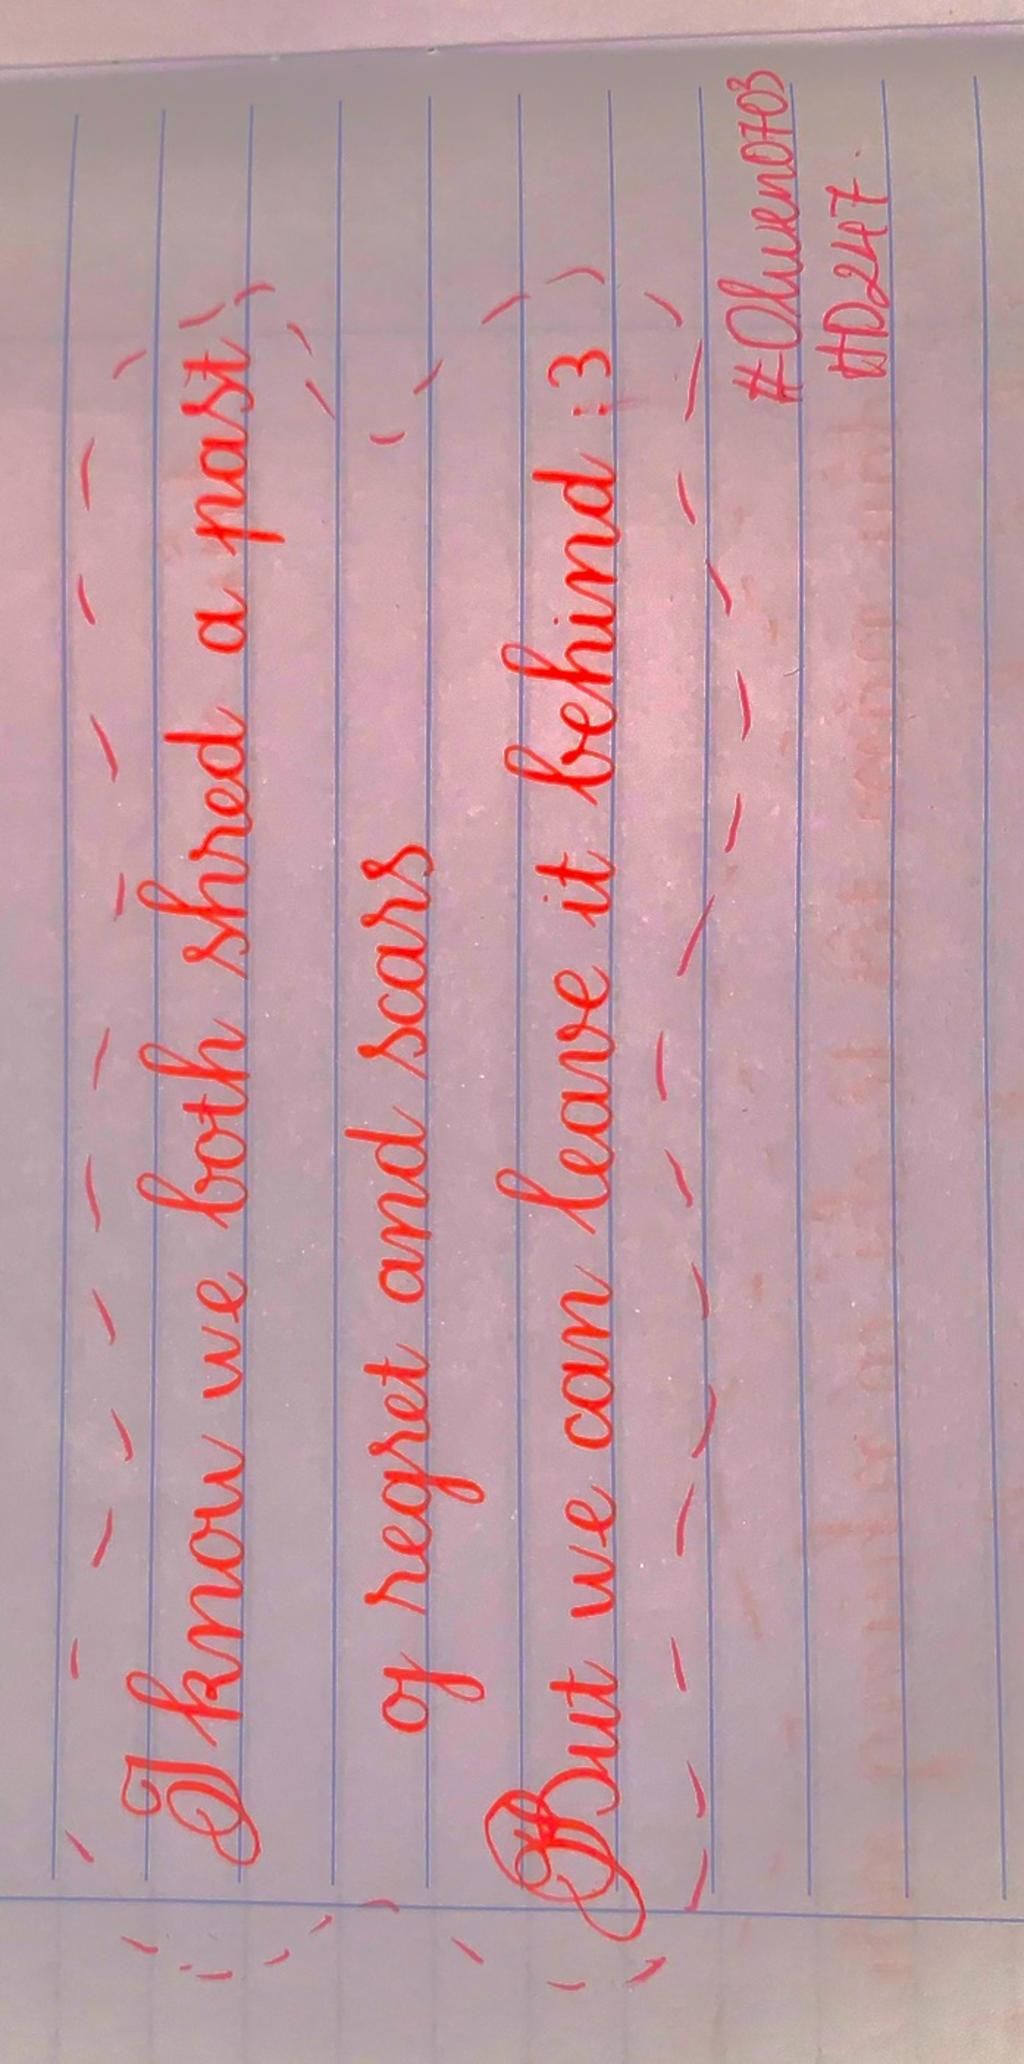 I know we both shred a past
of regret and scars
But we can leave it behind :3
#Oliwen0703
#D247.